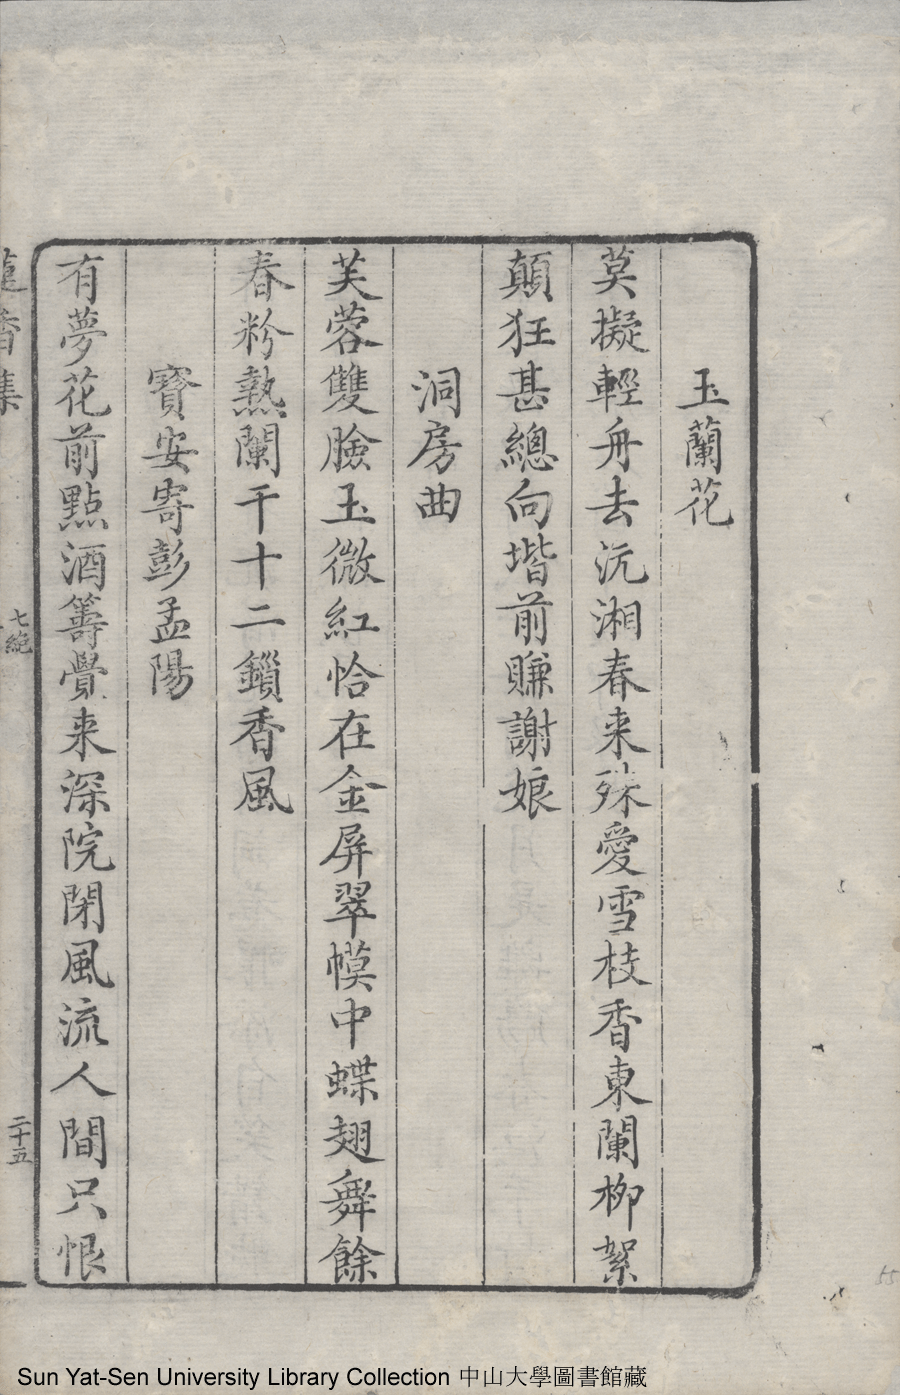 玉蘭花
莫擬輕舟去沅湘春来殊愛雪枝香東闌柳絮
顛狂甚總向堦前賺謝娘
洞房曲
芙蓉雙臉玉微紅恰在金屏翠幙中蝶翅舞餘
春粉熱闌干十二鎻香風
寳安寄彭孟陽
有夢花前點酒籌覺来深院閉風流人間只恨
香集
七絶
二十五
55
Sun Yat-Sen University Library Collection 中山大學圖書館藏